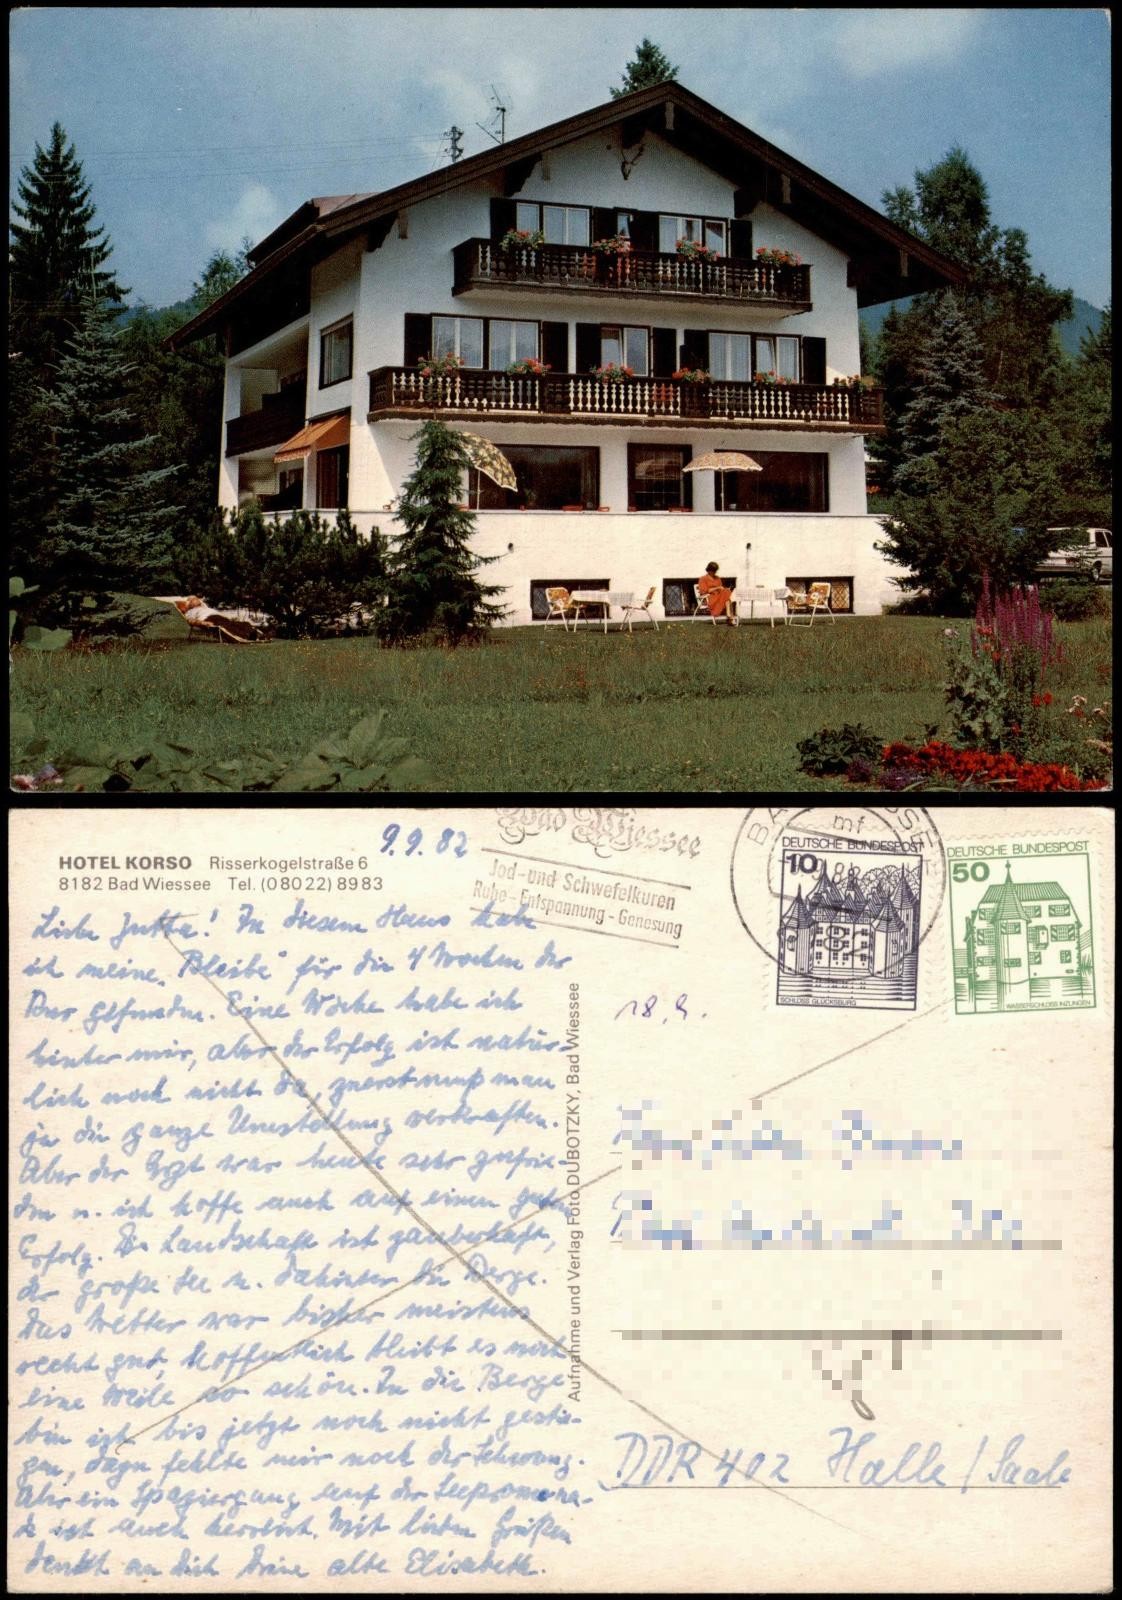 HOTEL KORSO Risserkogelstraße 6
8182 Bad Wiessee Tel. (08022) 8983
9.9.82
Bad Wiessee
Jod- und Schwefelkuren
Ruhe - Entspannung - Genesung
mf
DEUTSCHE BUNDESPOST
10
SCHLOSS GLÜCKSBURG
DEUTSCHE BUNDESPOST
50
WASSERSCHLOSS INZLINGEN
Liebe Jutta! In diesem Haus habe
ich meine „Bleibe" für die 4 Wochen der
Kur gefunden. Eine Woche habe ich
hinter mir, aber der Erfolg ist natür-
lich noch nicht da, zuerst muß man
ja die ganze Umstellung verkraften.
Aber der Arzt war heute sehr zufrie-
den u. ich hoffe auch auf einen guten
Erfolg. Die Landschaft ist zauberhaft,
der große See u. dahinter die Berge.
Das Wetter war bisher meistens
recht gut, hoffentlich bleibt es noch
eine Weile so schön. In die Berge
bin ich bis jetzt noch nicht gestie-
gen, dazu fehlte mir noch der Schwung.
Aber ein Spaziergang auf der Seepromena-
de ist auch herrlich. Mit lieben Grüßen
denkt an Dich Deine alte Elisabeth.
Aufnahme und Verlag Foto DUBOTZKY, Bad Wiessee
18.9.
DDR 402 Halle / Saale